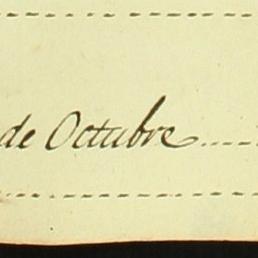 de Octubre....